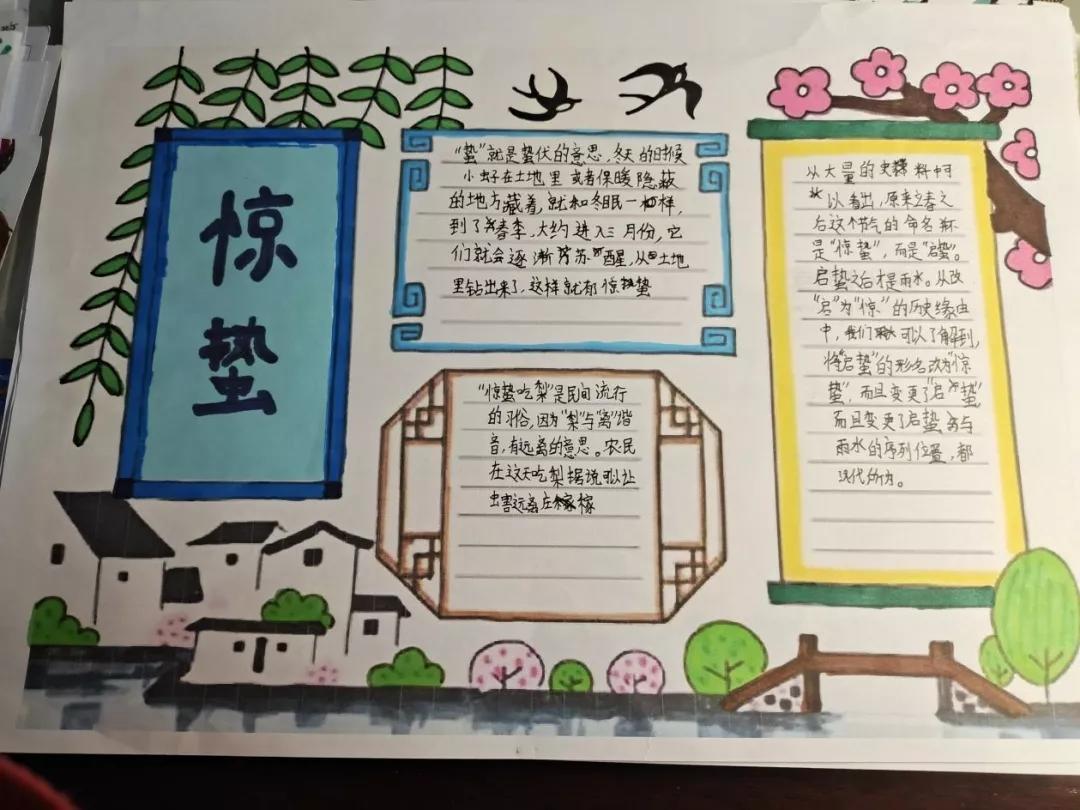 惊
蛰
"蛰"就是蛰伏的意思,冬天的时候
小虫子在土地里或者保暖隐蔽
的地方藏着,就和冬眠一样,
到了春季,大约进入三月份,它
们就会逐渐苏醒,从土地
里钻出来了,这样就有惊蛰
"惊蛰吃梨"是民间流行
的习俗,因为"梨"与"离"谐
音,有远离的意思。农民
在这天吃梨据说可以让
虫害远离庄稼
从大量的史料中可
以看出,原来立春之
后这个节气的命名不
是"惊蛰",而是"启蛰"。
启蛰之后才是雨水。从改
"启"为"惊"的历史缘由
中,我们可以了解到,
将"启蛰"的形名改为"惊
蛰",而且变更了"启蛰"
而且变更了启蛰与
雨水的序列位置,都
汉代所为。